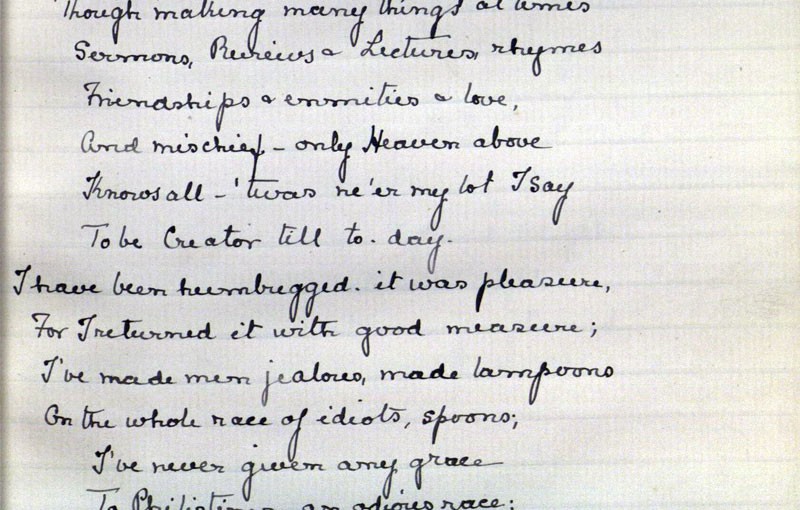 Though making many things at times
Sermons, Reviews & Lectures, rhymes
Friendships & enmities & love,
And mischief - only Heaven above
Knows all - 'twas ne'er my lot I say
To be Creator till to.day.
I have been humbugged. it was pleasure,
For I returned it with good measure;
I've made men jealous, made lampoons
On the whole race of idiots, spoons;
I've never given any grace
To Philistines an odious race: